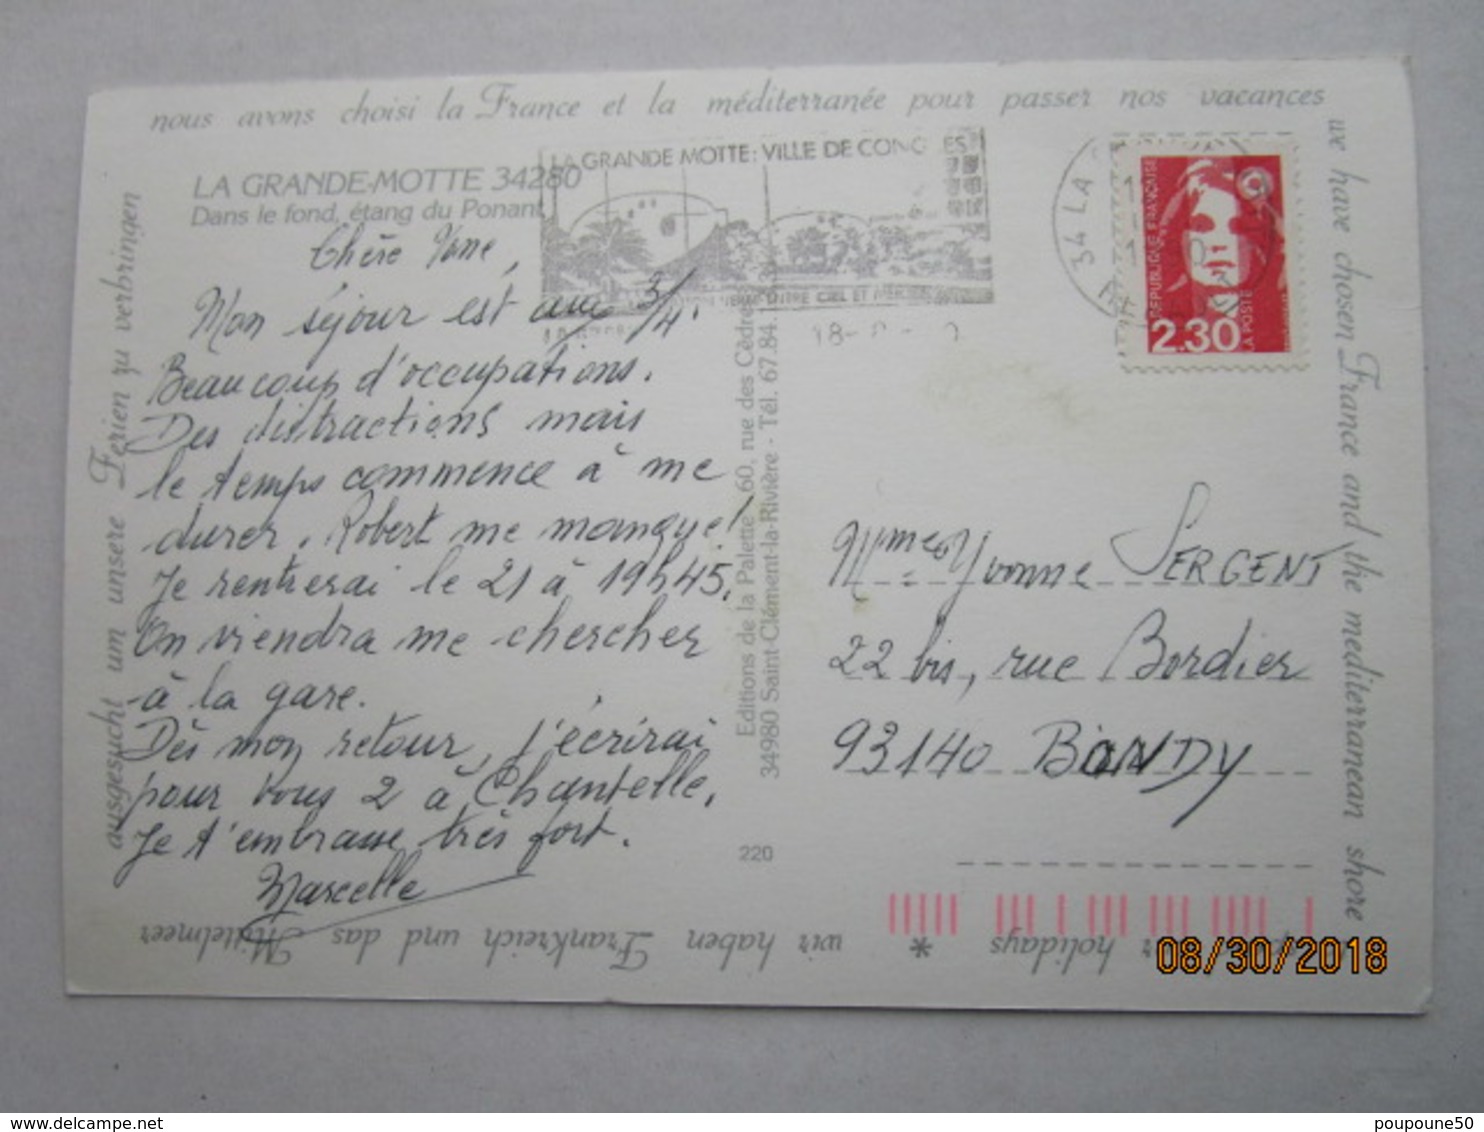 nous avons choisi la France et la méditerranée pour passer nos vacances
we have chosen France and the mediterranean shore
r holidays
wir haben Frankreich und das Mittelmeer
ausgesucht um unsere Ferien zu verbringen
LA GRANDE-MOTTE 34280
Dans le fond, étang du Ponant
LA GRANDE MOTTE: VILLE DE CONG ES
ENTRE CIEL ET
18-
34 LA
REPUBLIQUE FRANÇAISE
2.30
LA POSTE
Chère Vone,
Mon séjour est aux 3/4.
Beaucoup d'occupations.
Des distractions mais
le temps commence à me
durer. Robert me manque!
Je rentrerai le 21 à 19h45.
On viendra me chercher
à la gare.
Dès mon retour, j'écrirai
pour vous 2 à Chantelle.
Je t'embrasse très fort.
Marcelle
Editions de la Palette 60, rue des Cèdres
34980 Saint-Clément-la-Rivière - Tél. 67.84
220
Mme Yvonne SERGENT
22 bis, rue Bordier
93140 BONDY
08/30/2018
poupoune50